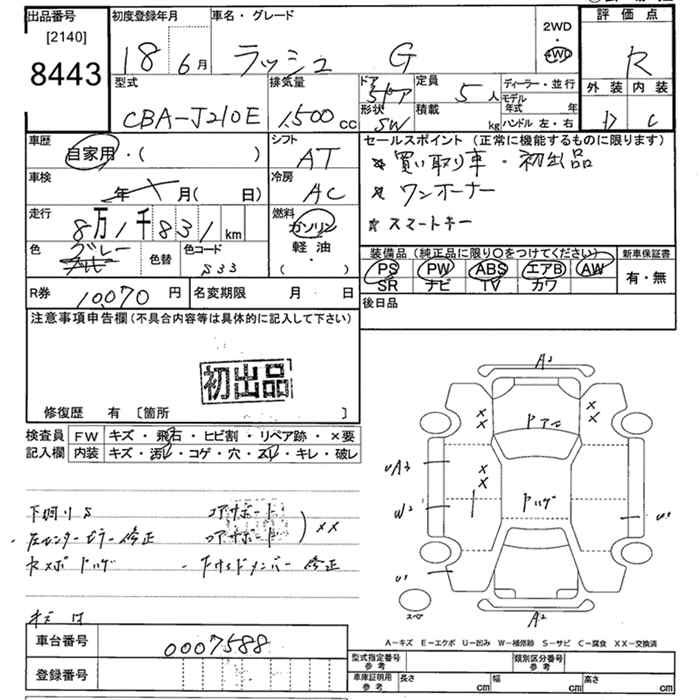 出品番号
[2140]
8443
初度登録年月
18 6月
車名・グレード
ラッシュ G
2WD
4WD
評価点
R
外装 内装
D C
型式
CBA-J210E
排気量
1500cc
ドア
5ドア
形状
SW
定員
5人
積載
kg
ディーラー・並行
モデル年式 年
ハンドル 左・右
車歴
自家用・( )
シフト
AT
セールスポイント (正常に機能するものに限ります)
* 買い取り車・初出品
* ワンオーナー
* スマートキー
車検
年 月( 日)
冷房
AC
走行
8万1千831km
燃料
ガソリン
軽油
( )
色
グレー
色替
色コード
S33
装備品 (純正品に限り○をつけてください)
PS PW ABS エアB AW
SR ナビ TV カワ
新車保証書
有・無
R券 10,070円
名変期限 月 日
後日品
注意事項申告欄(不具合内容等は具体的に記入して下さい)
初出品
修復歴 有 〔箇所 〕
検査員
記入欄
FW キズ・飛石・ヒビ割・リペア跡・×要
内装 キズ・汚れ・コゲ・穴・スレ・キレ・破レ
下廻りS コアサポート
・左センターピラー修正 コアサポート ××
修正
A2
××
××
××
W2
スペア
A2
A-キズ E-エクボ U-凹み W-補修跡 S-サビ C-腐食 XX-交換済
車台番号 0007588
登録番号
型式指定番号
参考
類別区分番号
参考
車庫証明用
参考
長さ cm 幅 cm 高さ cm